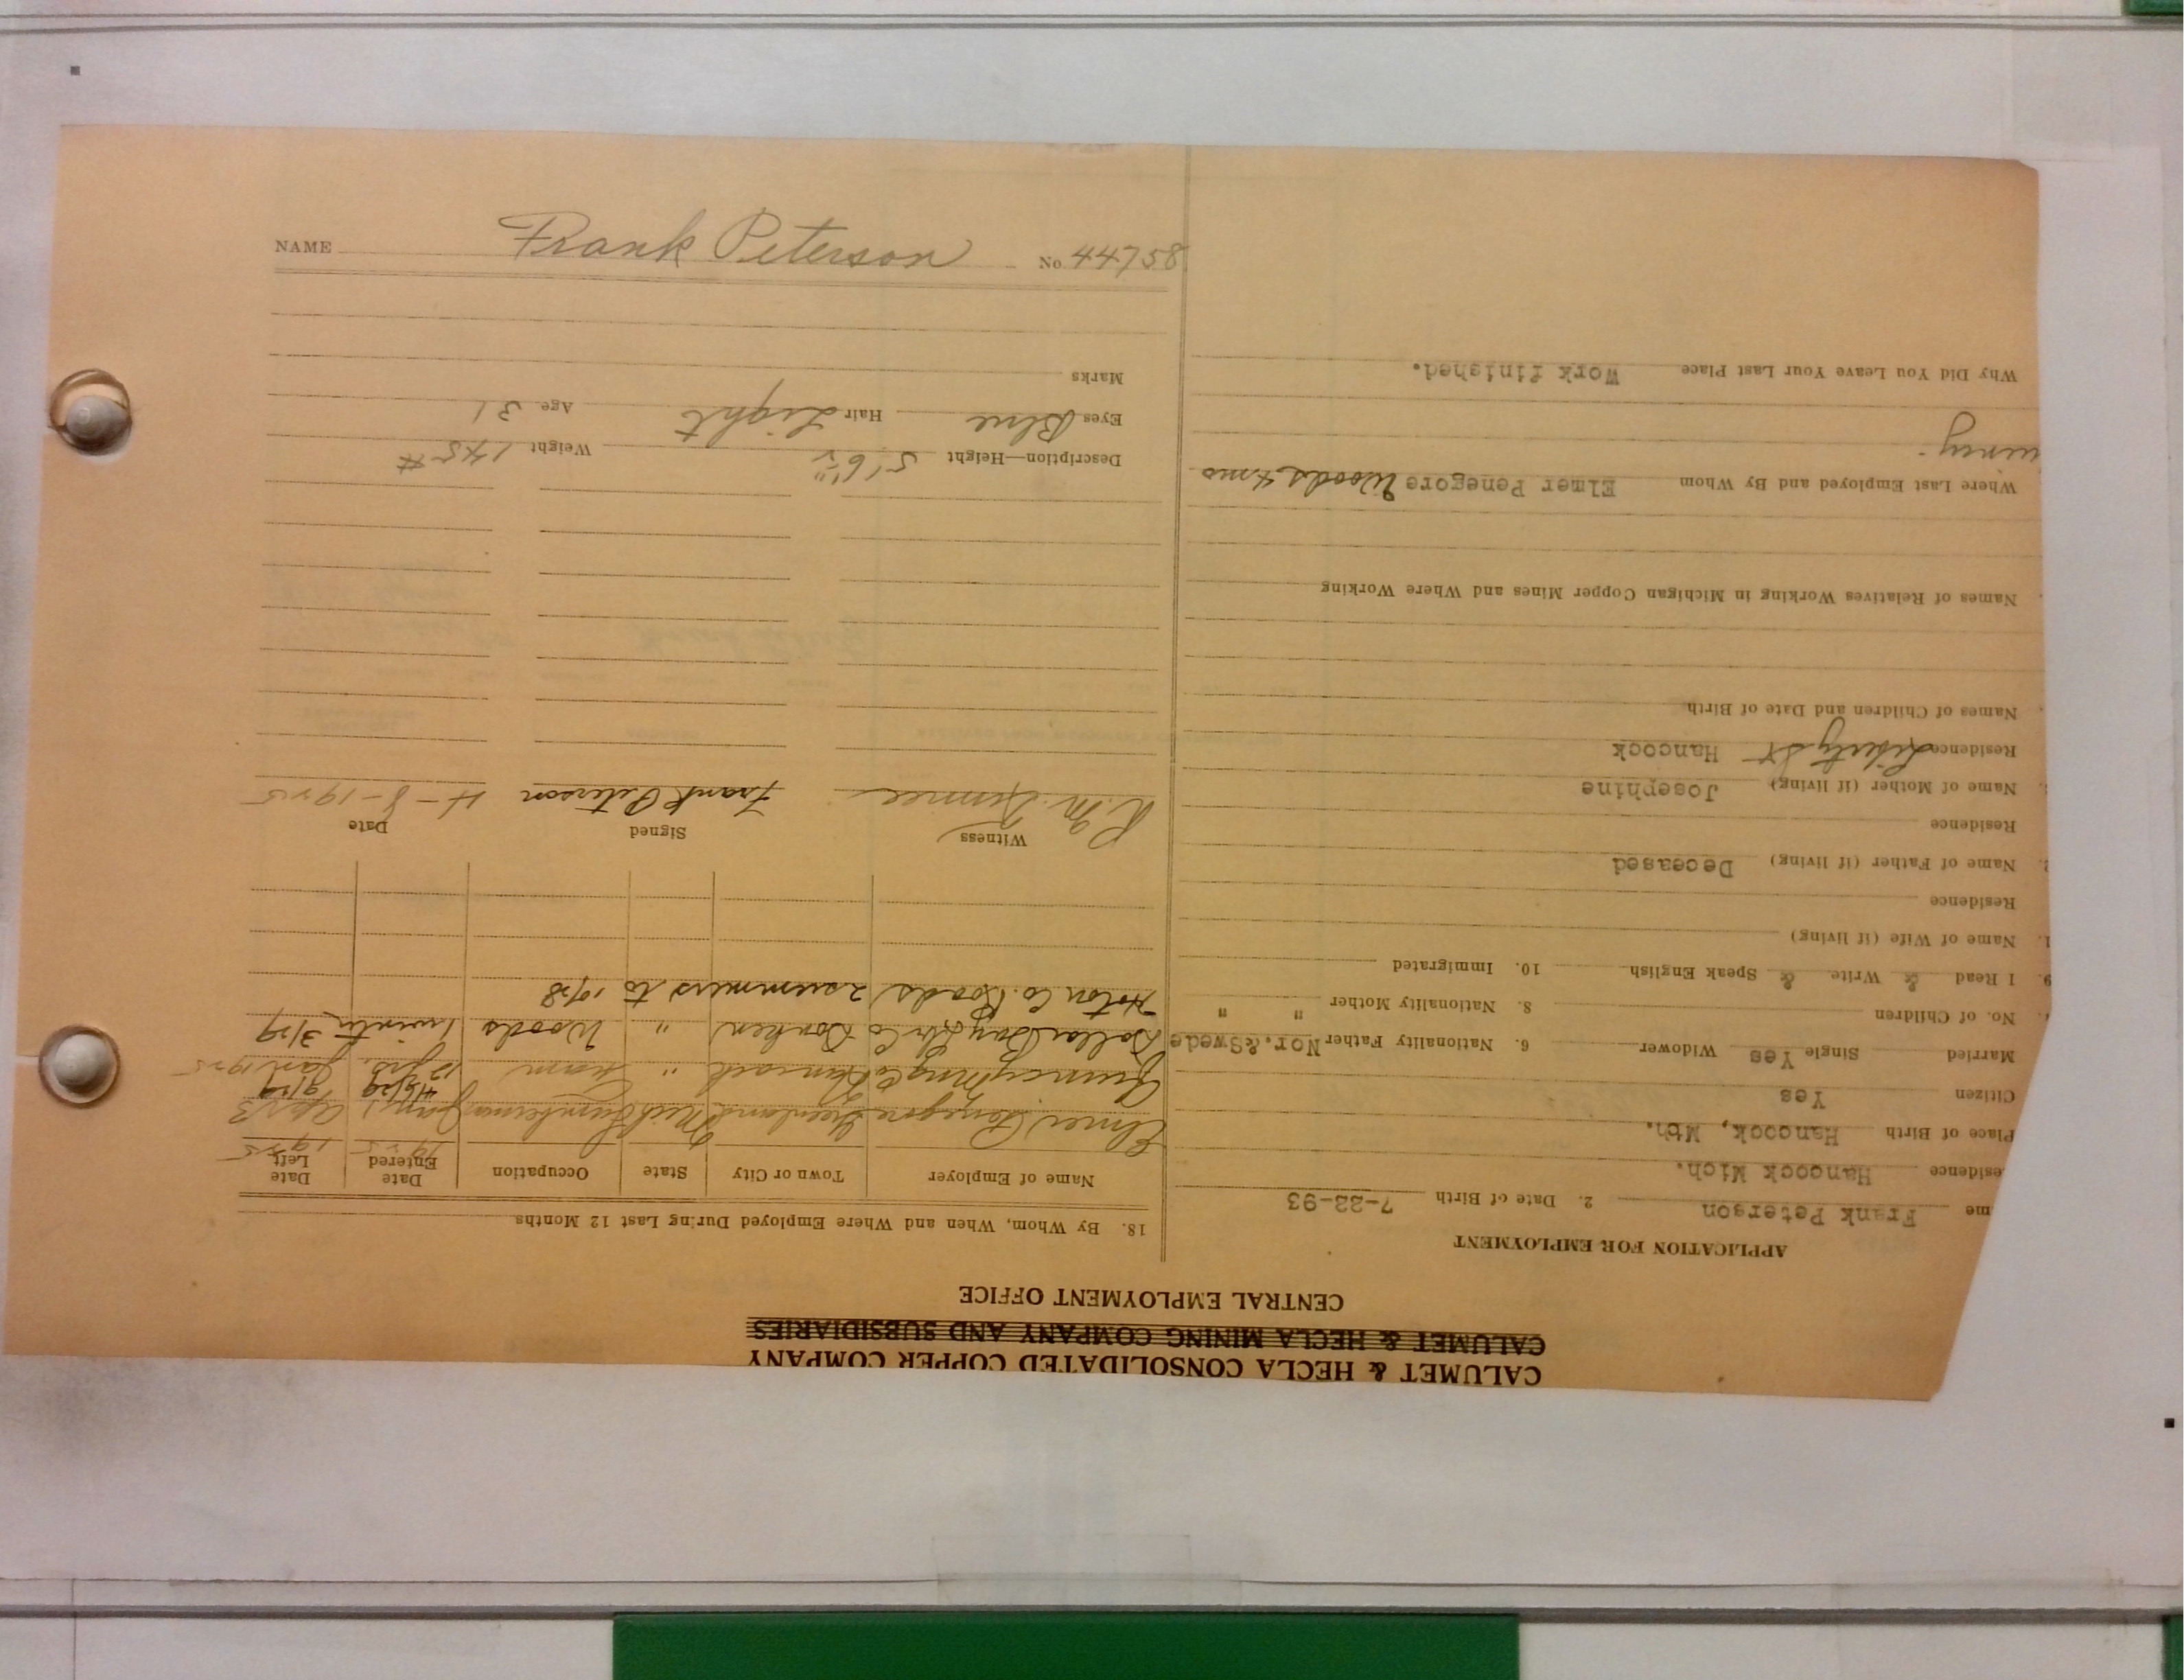 CALUMET & HECLA CONSOLIDATED COPPER COMPANY
CALUMET & HECLA MINING COMPANY AND SUBSIDIARIES
CENTRAL EMPLOYMENT OFFICE
APPLICATION FOR EMPLOYMENT
me Frank Peterson 2. Date of Birth 7-22-93
esidence Hancock Mich.
Place of Birth Hancock, Mth.
Citizen Yes
Married Single Yes Widower 6. Nationality Father Nor.&Swede
No. of Children 8. Nationality Mother " "
9. I Read & Write & Speak English 10. Immigrated
1. Name of Wife (if living)
Residence
2. Name of Father (if living) Deceased
Residence
Name of Mother (if living) Josephine
Residence Liberty St Hancock
Names of Children and Date of Birth
Names of Relatives Working in Michigan Copper Mines and Where Working
Where Last Employed and By Whom Elmer Penegore Woods 4 mo
uincy.
Why Did You Leave Your Last Place Work finished.
18. By Whom, When and Where Employed During Last 12 Months
Name of Employer Town or City State Occupation Date Entered Date Left
1925 1925
Elmer Greenland Mich Lumberman Jany Apr 3
4/5/29 9/29
Quincy Mng Co Hancock " 12 yrs. Jan 1925
Dollar Bay Co " Woods 1 winter 3/29
Hoton Co. Roads 2 summers to 10/28
Witness Signed Date
R. M. Frank Peterson 4-8-1925
Description—Height 5'6½" Weight 145#
Eyes Blue Hair Light Age 31
Marks
NAME Frank Peterson No. 44758